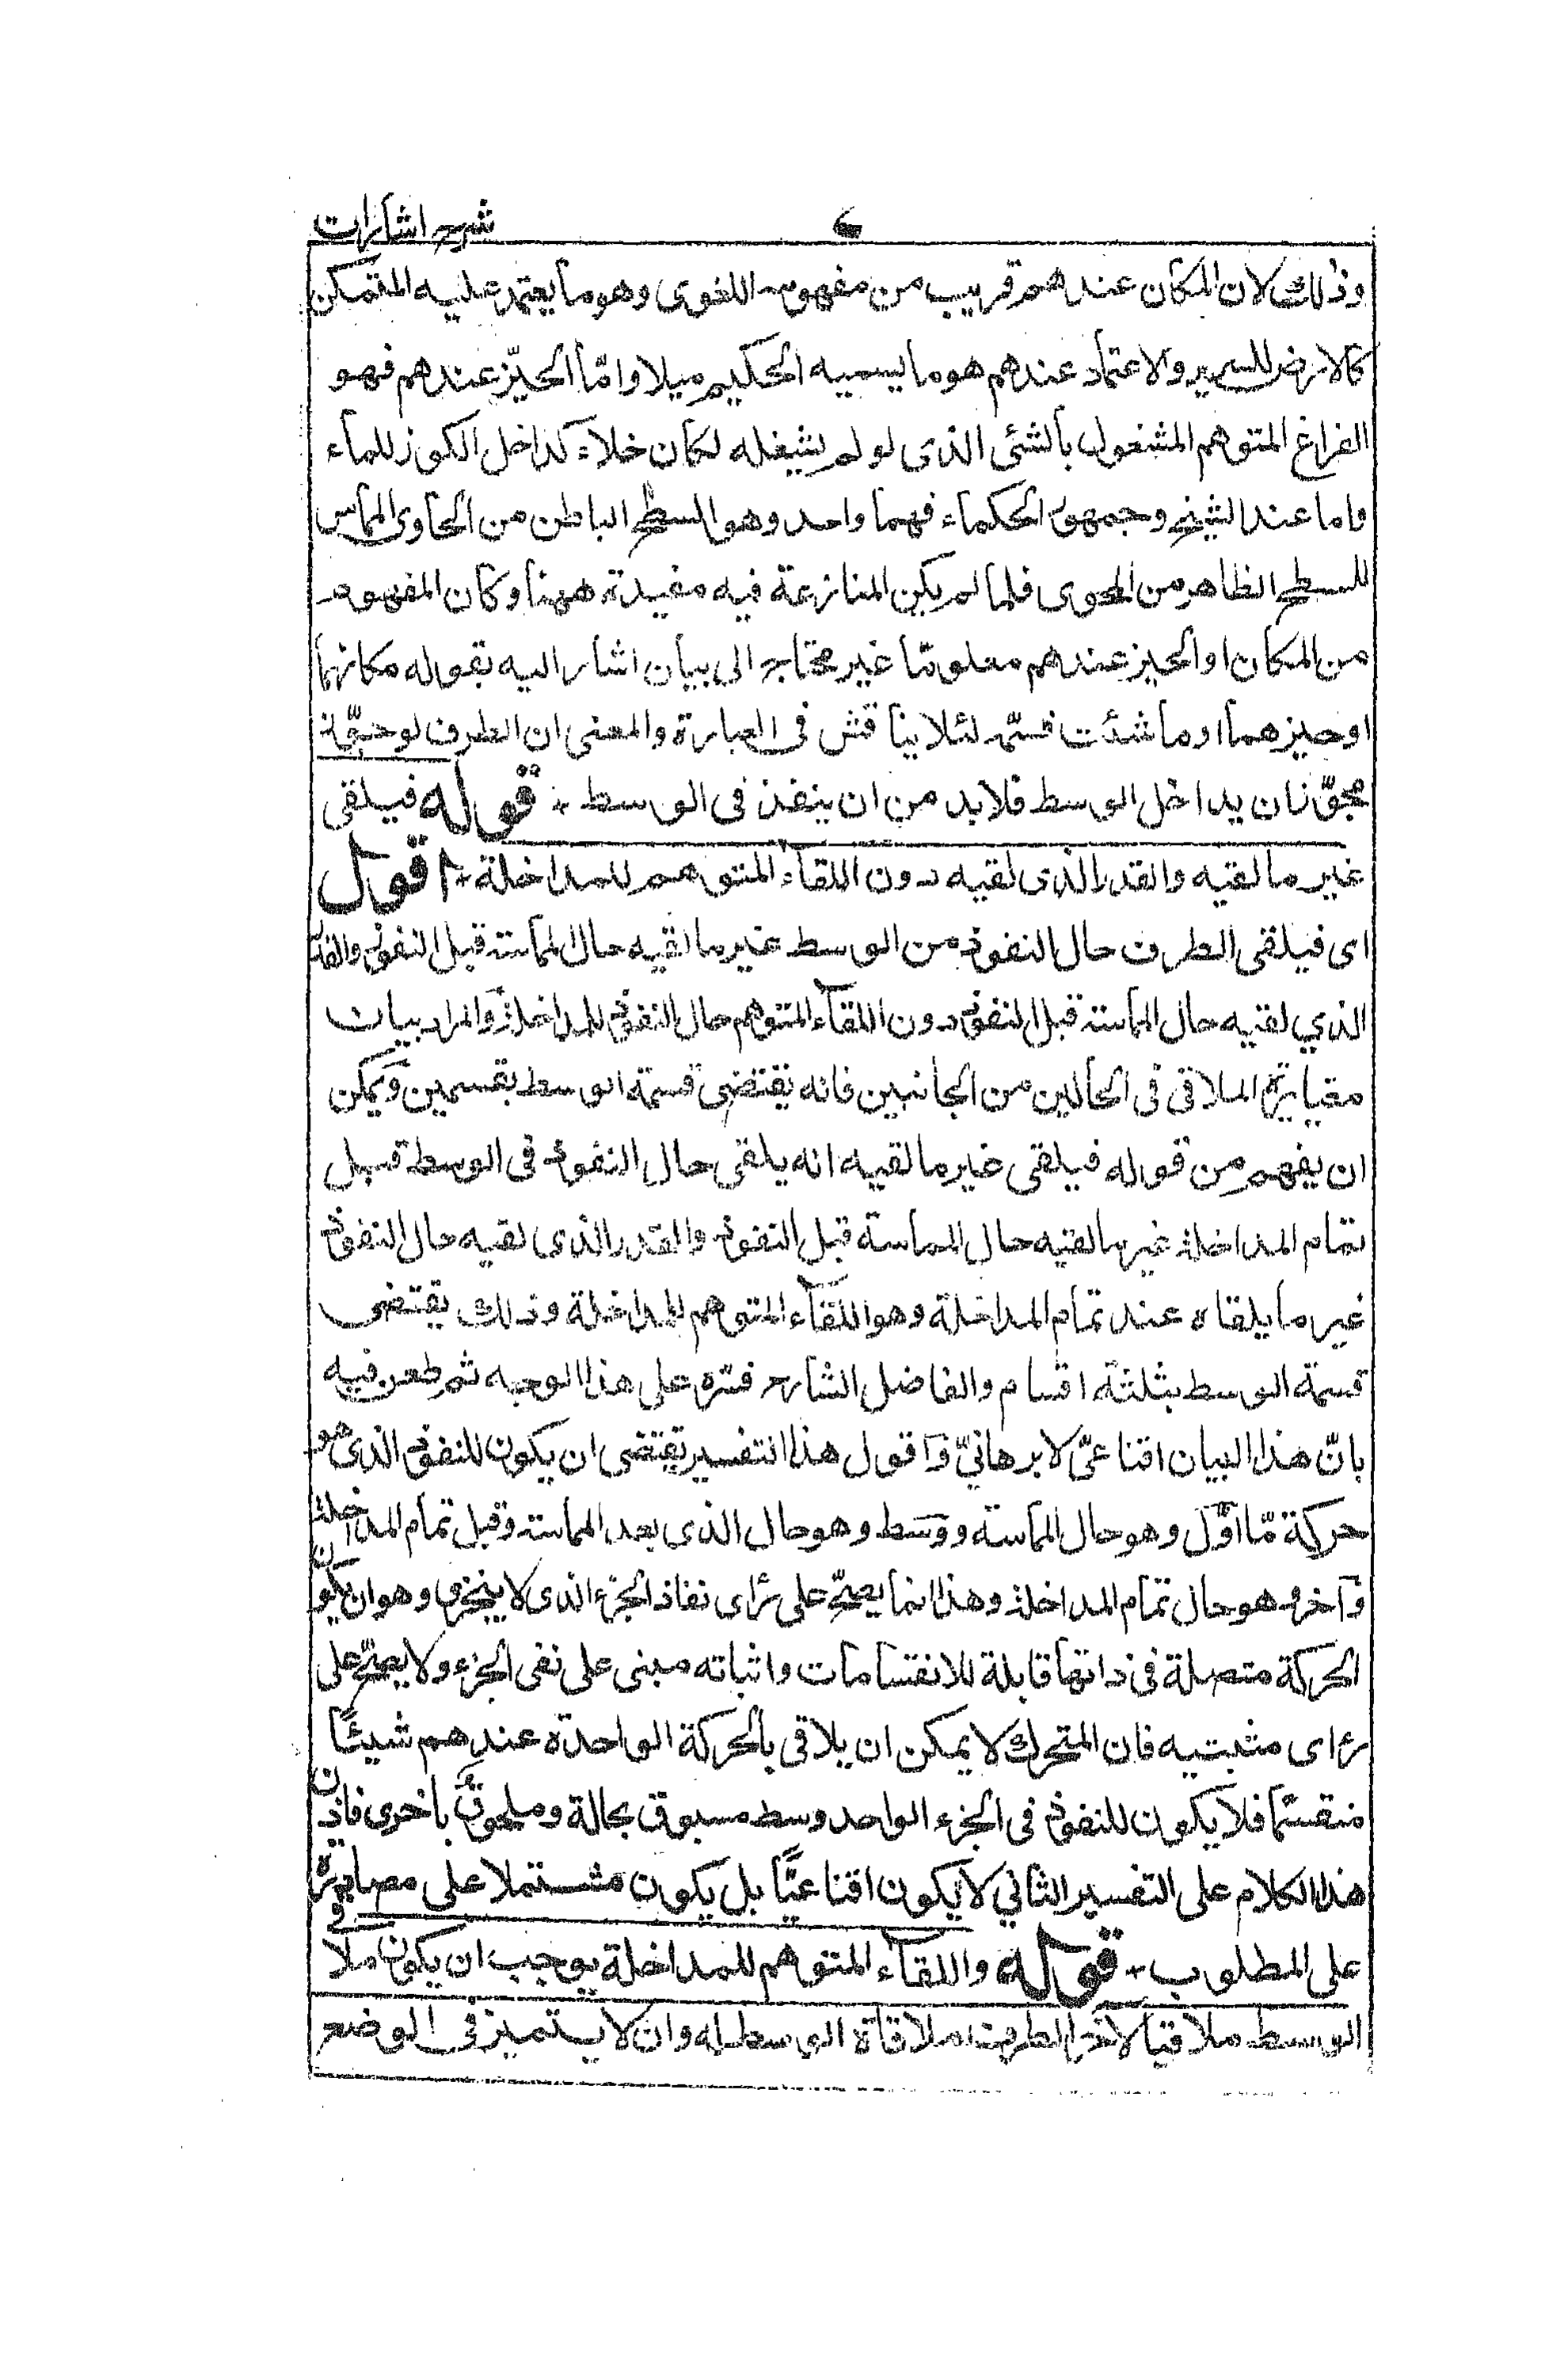 شرح اشارات
وذلك لان المكان عندهم قريب من مفهومه اللغوى وهو ما يعتمد عليه المتمكن
كالارض للسرير والاعتماد عندهم هو ما يسميه الحكيم ميلا وامّا الحيّز عندهم فهو
الفراغ المتوهم المشغول بالشئ الذى لو لم يشغله لكان خلاء كداخل الكوز للماء
واما عند الشيخ وجمهور الحكماء فهما واحد وهو السطح الباطن من الحاوى المماس
للسطح الظاهر من المحوى فلما لم يكن المنازعة فيه مفيدة ههنا وكان المفهوم
من المكان او الحيز عندهم معلومًا غير محتاج الى بيان اشار اليه بقوله مكانهما
او حيزهما او ما شئت فسمّه لئلا يناقش فى العبارة والمعنى ان الطرف لو
يداخل الوسط فلابد من ان ينفذ فى الوسط + قوله فيلقى
غير ما لقيه والقدر الذى لقيه دون اللقاء المتوهم للمداخلة + اقول
اى فيلقى الطرف حال النفوذ من الوسط غير ما لقيه حال المماسة قبل النفوذ والقدر
الذي لقيه حال المماسة قبل النفوذ دون اللقاء المتوهم حال النفوذ للمداخلة والمراد بيان
مغايرة الملاقى فى الحالين من الجانبين فانه يقتضى قسمة الوسط بقسمين ويمكن
ان يفهم من قوله فيلقى غير ما لقيه انه يلقى حال النفوذ فى الوسط قبل
تمام المداخلة غير ما لقيه حال المماسة قبل النفوذ والقدر الذى لقيه حال النفوذ
غير ما يلقاه عند تمام المداخلة وهو اللقاء المتوهم للمداخلة وذلك يقتضى
قسمة الوسط بثلثة اقسام والفاضل الشارح فسّره على هذا الوجه ثم طعن فيه
بانّ هذا البيان اقناعىّ لا برهانيّ واقول هذا التفسير يقتضى ان يكون للنفوذ الذى هو
حركة مّا اوّل وهو حال المماسة ووسط وهو حال الذى بعد المماسة وقبل تمام المداخلة
وآخر وهو حال تمام المداخلة وهذا انما يصحّ على رأى نفاة الجزء الذى لا يتجزى وهو ان يكون
الحركة متصلة فى ذاتها قابلة للانقسامات واثباته مبنى على نفى الجزء ولا يصحّ على
رأى مثبتيه فان المتحرك لا يمكن ان يلاقى بالحركة الواحدة عندهم شيئًا
منقسمًا فلا يكون للنفوذ فى الجزء الواحد وسط مسبوق بحالة وملحوق باخرى فاذن
هذا الكلام على التفسير الثاني لا يكون اقناعيًّا بل يكون مشتملا على مصادرة
على المطلوب + قوله واللقاء المتوهم للمداخلة يوجب ان يكون ملاقى
الوسط ملاقيا لآخر الطرف ملاقاة الوسط له وان لا يتميز فى الوضع